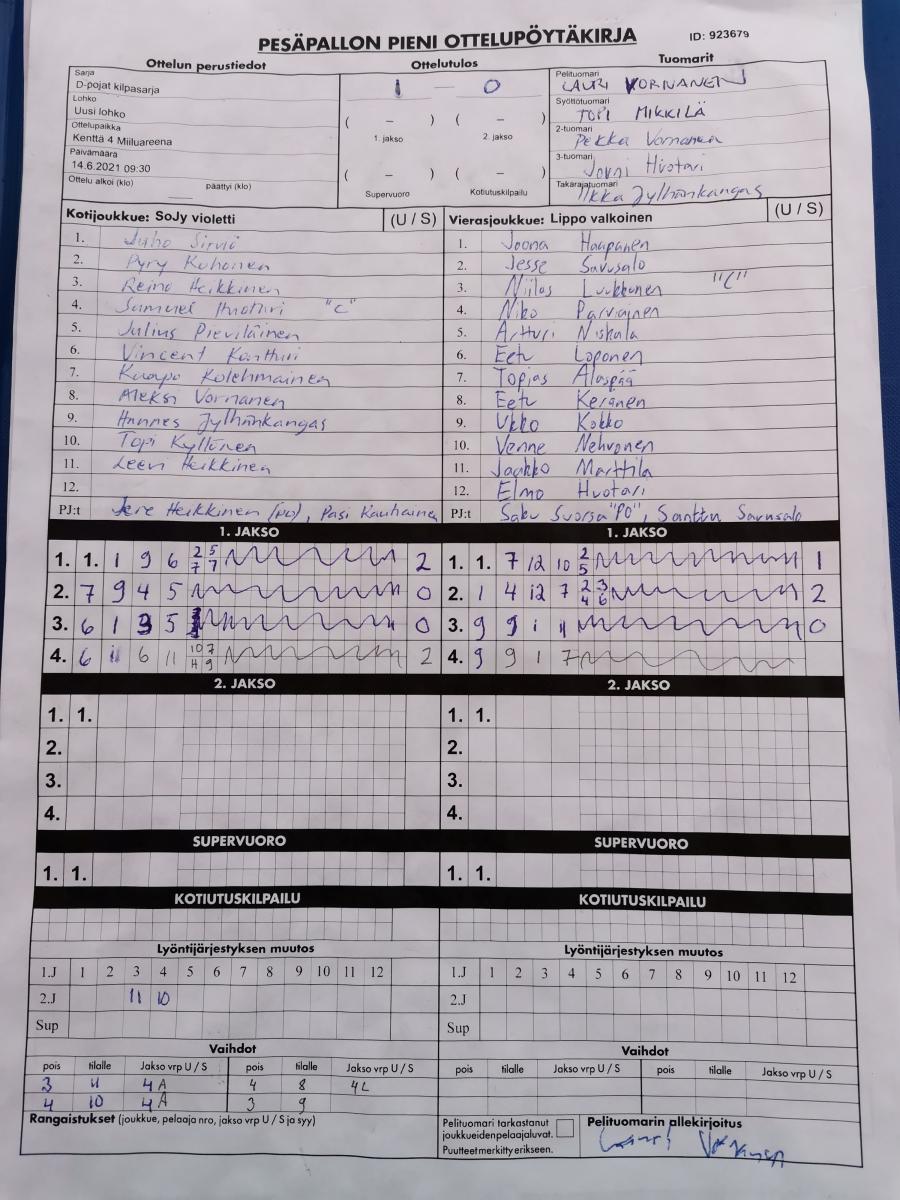 PESÄPALLON PIENI OTTELUPÖYTÄKIRJA
ID: 923679
Ottelun perustiedot
Ottelutulos
Tuomarit
Sarja
D-pojat kilpasarja
Lohko
Uusi lohko
Ottelupaikka
Kenttä 4 Miiluareena
Päivämäärä
14.6.2021 09:30
Ottelu alkoi (klo) päättyi (klo)
1 — 0
( – ) ( – )
1. jakso 2. jakso
( – ) ( – )
Supervuoro Kotiutuskilpailu
Pelituomari
LAURI VORNANEN
Syöttötuomari
TOPI MIKKILÄ
2-tuomari
Pekka Vornanen
3-tuomari
Jouni Huotari
Takarajatuomari
Ilkka Jylhänkangas
Kotijoukkue: SoJy violetti (U / S)
1. Juho Sirviö
2. Pyry Kuhonen
3. Reino Heikkinen
4. Samuel Huotari "C"
5. Julius Pieviläinen
6. Vincent Kantturi
7. Kuapo Kolehmainen
8. Aleksi Vornanen
9. Hannes Jylhänkangas
10. Topi Kyllönen
11. Leevi Heikkinen
12.
PJ:t Jere Heikkinen (PO), Pasi Kauhanen
Vierasjoukkue: Lippo valkoinen (U / S)
1. Joona Haapanen
2. Jesse Savusalo
3. Niilos Luukkonen "C"
4. Niko Parviainen
5. Artturi Niskala
6. Eetu Loponen
7. Topias Alaspää
8. Eetu Keränen
9. Ukko Kokko
10. Venne Nehvonen
11. Jaakko Marttila
12. Elmo Huotari
PJ:t Saku Suorsa "PO", Santtu Savusalo
1. JAKSO
1. 1. 1 9 6 2 5 7 7 2
2. 7 9 4 5 0
3. 6 1 3 5 0
4. 6 11 6 11 10 7 H 9 2
1. JAKSO
1. 1. 7 12 10 2 5 1
2. 1 4 12 7 2 3 4 6 2
3. 9 9 1 11 0
4. 9 9 1 7
2. JAKSO
1. 1.
2.
3.
4.
2. JAKSO
1. 1.
2.
3.
4.
SUPERVUORO
1. 1.
SUPERVUORO
1. 1.
KOTIUTUSKILPAILU
KOTIUTUSKILPAILU
Lyöntijärjestyksen muutos
1.J 1 2 3 4 5 6 7 8 9 10 11 12
2.J 11 10
Sup
Lyöntijärjestyksen muutos
1.J 1 2 3 4 5 6 7 8 9 10 11 12
2.J
Sup
Vaihdot
pois tilalle Jakso vrp U / S pois tilalle Jakso vrp U / S
3 11 4A 4 8 4L
4 10 4A 3 9
Vaihdot
pois tilalle Jakso vrp U / S pois tilalle Jakso vrp U / S
Rangaistukset (joukkue, pelaaja nro, jakso vrp U / S ja syy)
Pelituomari tarkastanut
joukkueidenpelaajaluvat.
Puutteet merkitty erikseen.
Pelituomarin allekirjoitus
Lauri Vornanen